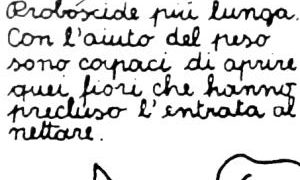 Proboscide più lunga.
Con l'aiuto del peso
sono capaci di aprire
quei fiori che hanno
precluso l'entrata al
nettare.